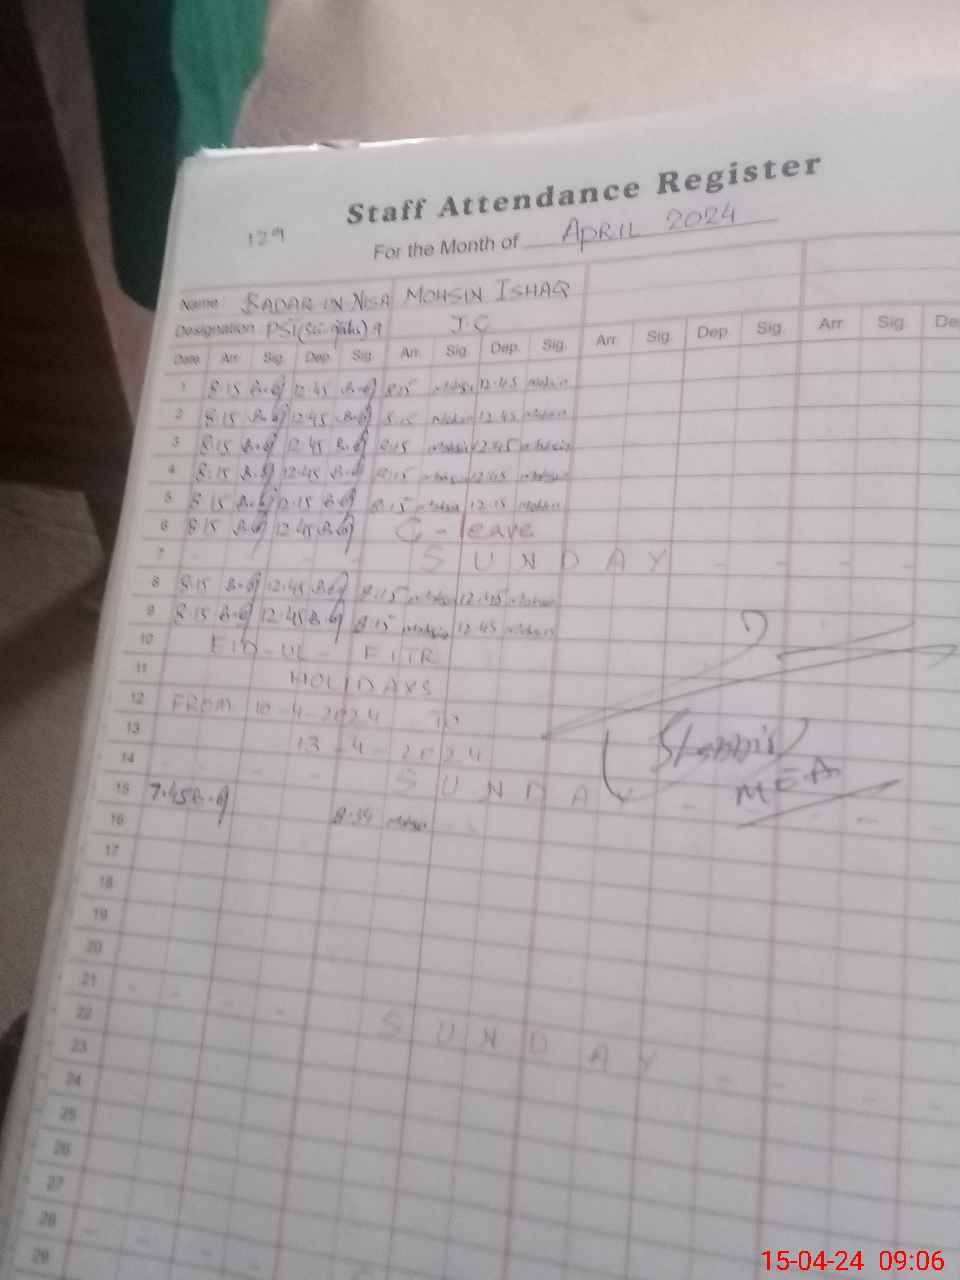 Staff Attendance Register
129
For the Month of APRIL 2024
Name BADAR-UN-NISA MOHSIN ISHAQ
Designation PST J.C
Date Arr. Sig. Dep. Sig. Arr. Sig. Dep. Sig. Arr. Sig. Dep. Sig. Arr. Sig. De
1 8:15 12:45 8:15 Mohsin 12:45 Mohsin
2 8:15 12:45 8:15 Mohsin 12:45 Mohsin
3 8:15 12:45 8:15 Mohsin 12:45 Mohsin
4 8:15 12:45 8:15 Mohsin 12:45 Mohsin
5 8:15 12:15 8:15 Mohsin 12:15 Mohsin
6 8:15 12:45 C-leave
7 - - - S U N D A Y - - - -
8 8:15 12:45 8:15 Mohsin 12:45 Mohsin
9 8:15 12:45 8:15 Mohsin 12:45 Mohsin
10 EID-UL-FITR
11 HOLIDAYS
12 FROM 10-4-2024 TO
13 13-4-2024
14 - - - - S U N D A Y - - -
15 7:45 8:34 Mohsin
MEA
16
17
18
19
20
21 - - - - S U N D A Y - - -
22
23
24
25
26
27
28 - - -
29
15-04-24 09:06